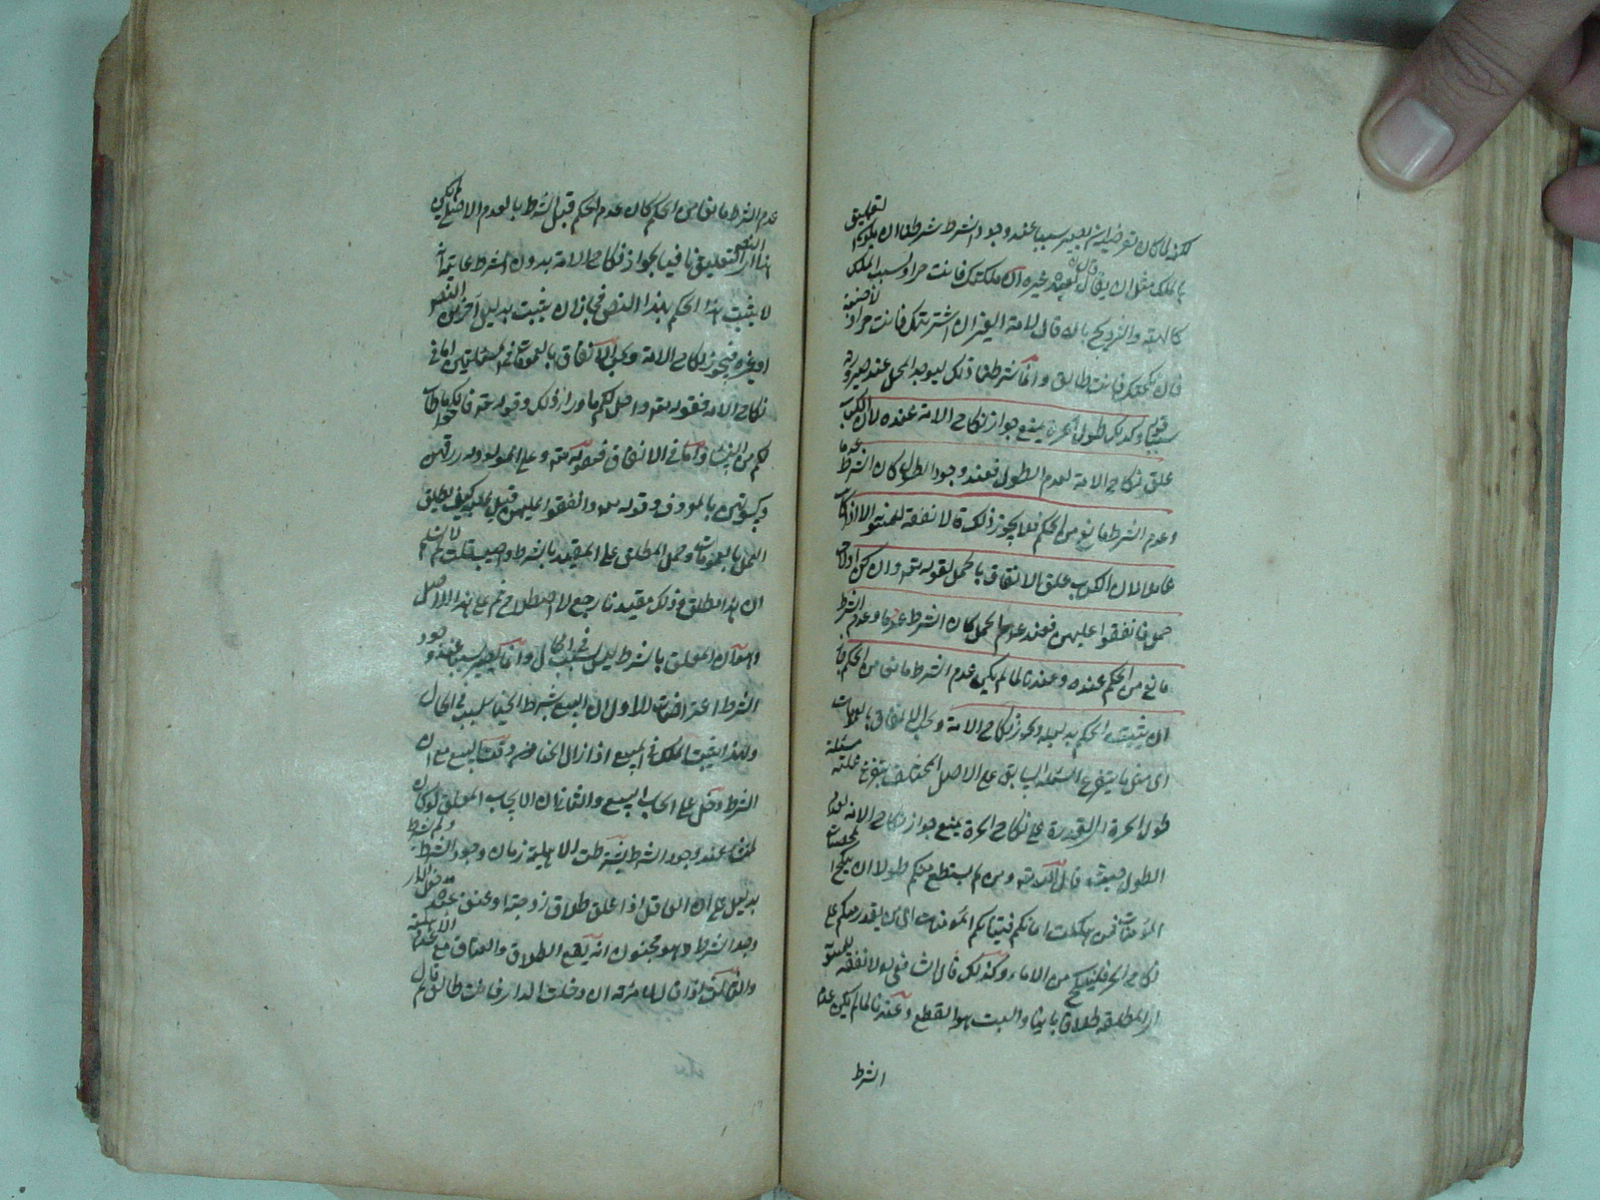 لكنه لما كان تعرض ان يصير سببا عند وجود الشرط شرطنا ان يكون التعليق
بالملك مثل ان يقال قال لعبد غيره ان ملكتك فانت حر او لسبب الملك
كالهبة والتزويج بان قال لامة الغير ان اشتريتك فانت حر او لاجنبية
فان نكحتك فانت طالق وانما شرطنا ذلك ليوجد المحل عند صيرورته
سببا قوله وكذلك طول الحرة يمنع جواز نكاح الامة عنده لان الكتاب
علق نكاح الامة بعدم الطول فعند وجود الطول كان الشرط عدما
وعدم الشرط مانع من الحكم فلا يجوز ذلك قال لا نفقة للمبتوتة الا اذا كانت
حاملا لان الكتاب علق الانفاق بالحمل لقوله تعه وان كن اولات
حمل فانفقوا عليهن فعند عدم الحمل كان الشرط عدما وعدم الشرط
مانع من الحكم عنده وعندنا لما لم يكن عدم الشرط مانعا من الحكم جاز
ان يثبت الحكم بدليله ويجوز نكاح الامة ويجب الانفاق بالعمومات
اى مثل ما يتفرع المسئلة السابق على الاصل المختلف يتفرع عليه مسئلة
طول الحرة القدرة على نكاح الحرة يمنع جواز نكاح الامة لعدم
الطول حيث قال الله تعه ومن لم يستطع منكم طولا ان ينكح المحصنات
المؤمنات فمن ما ملكت ايمانكم من فتياتكم المؤمنات اى من لم يقدر منكم على
نكاح الحر فلينكح من الاماء وكذلك قال الشافعى لا نفقة للمبتوتة
اى المطلقة طلاقا باينا والبت هو القطع وعندنا لما لم يكن عدم
الشرط
عدم الشرط مانعا من الحكم كان عدم الحكم قبل الشرط بالعدم الاصلى لكن
هذا النص التعليق نافيا لجواز نكاح الامة بدون الشرط غايته انه
لا يثبت هذا الحكم بهذا النص فجاز ان يثبت بدليل آخر من النص
او غيره فيجوز نكاح الامة ويجب الانفاق بالعمومات فى المسئلتين اما فى
نكاح الامة فقوله تعه واحل لكم ما وراء ذلكم وقوله تعه فانكحوا ما طاب
لكم من النساء واما فى الانفاق فقوله تعه وعلى المولود له رزقهن
وكسوتهن بالمعروف وقوله تعه وانفقوا عليهن قيل عليه كيف يطلق
العمل بالعمومات وحمل المطلق على المقيد بالشرط واجيب قلت لا نسلم
ان هذا مطلق وذلك مقيد نا رجع لا اصطلاح ثم على هذا الاصل
وهو ان المعلق بالشرط ليس بسبب فى الحال وانما يصير سببا عند وجود
الشرط اعتراضات الاول ان البيع بشرط الخيار سبب فى الحال
ولهذا يثبت الملك فى المبيع اذا زال الخيار من وقت البيع مع ان
الشرط دخل على ايجاب البيع والثانى ان الايجاب المعلق لو كان
عند وجود الشرط يشترط الاهلية زمان وجود الشرط ولم يشترط
بدليل على ان العاقل اذا علق طلاق زوجته او عتق عبده بدخول الدار
وجد الشرط وهو مجنون انه يقع الطلاق والعتاق مع عدم الاهلية
والثالث اذا قال لامرئته ان دخلت الدار فانت طالق ثم قال